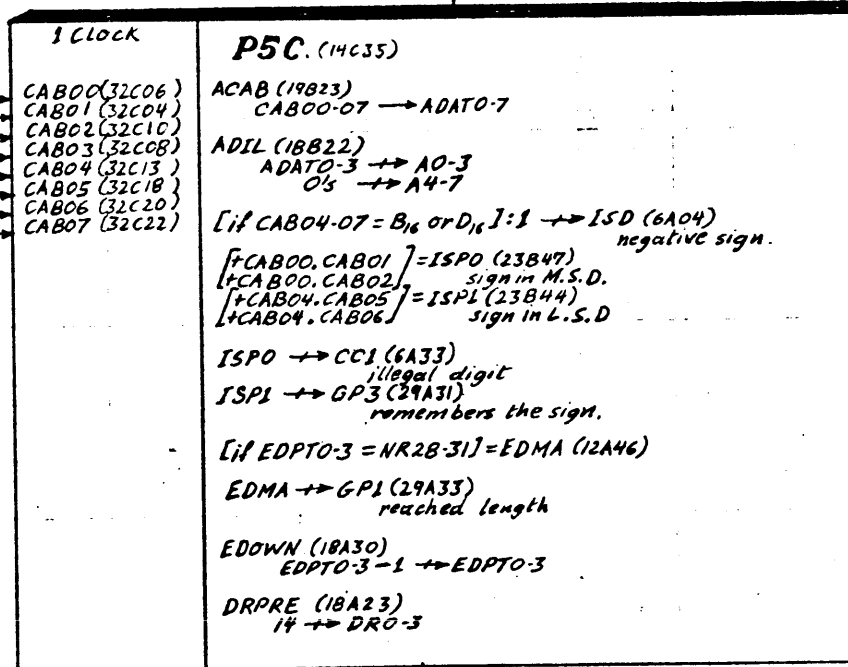 1 Clock
CAB00(32C06)
CAB01(32C04)
CAB02(32C10)
CAB03(32C08)
CAB04(32C13)
CAB05(32C18)
CAB06(32C20)
CAB07(32C22)
P5C. (14C35)
ACAB (19B23)
CAB00-07 → ADAT0-7
ADIL (18B22)
ADAT0-3 ↦ A0-3
0's ↦ A4-7
[if CAB04-07 = B₁₆ or D₁₆]:1 ↦ ISD (6A04)
negative sign.
[+CAB00.CAB01] = ISP0 (23B47)
[+CAB00.CAB02] sign in M.S.D.
[+CAB04.CAB05] = ISP1 (23B44)
[+CAB04.CAB06] sign in L.S.D
ISP0 ↦ CC1 (6A33)
illegal digit
ISP1 ↦ GP3 (29A31)
remembers the sign.
[if EDPT0-3 = NR28-31] = EDMA (12A46)
EDMA ↦ GP1 (29A33)
reached length
EDOWN (18A30)
EDPT0-3-1 ↦ EDPT0-3
DRPRE (18A23)
14 ↦ DR0-3